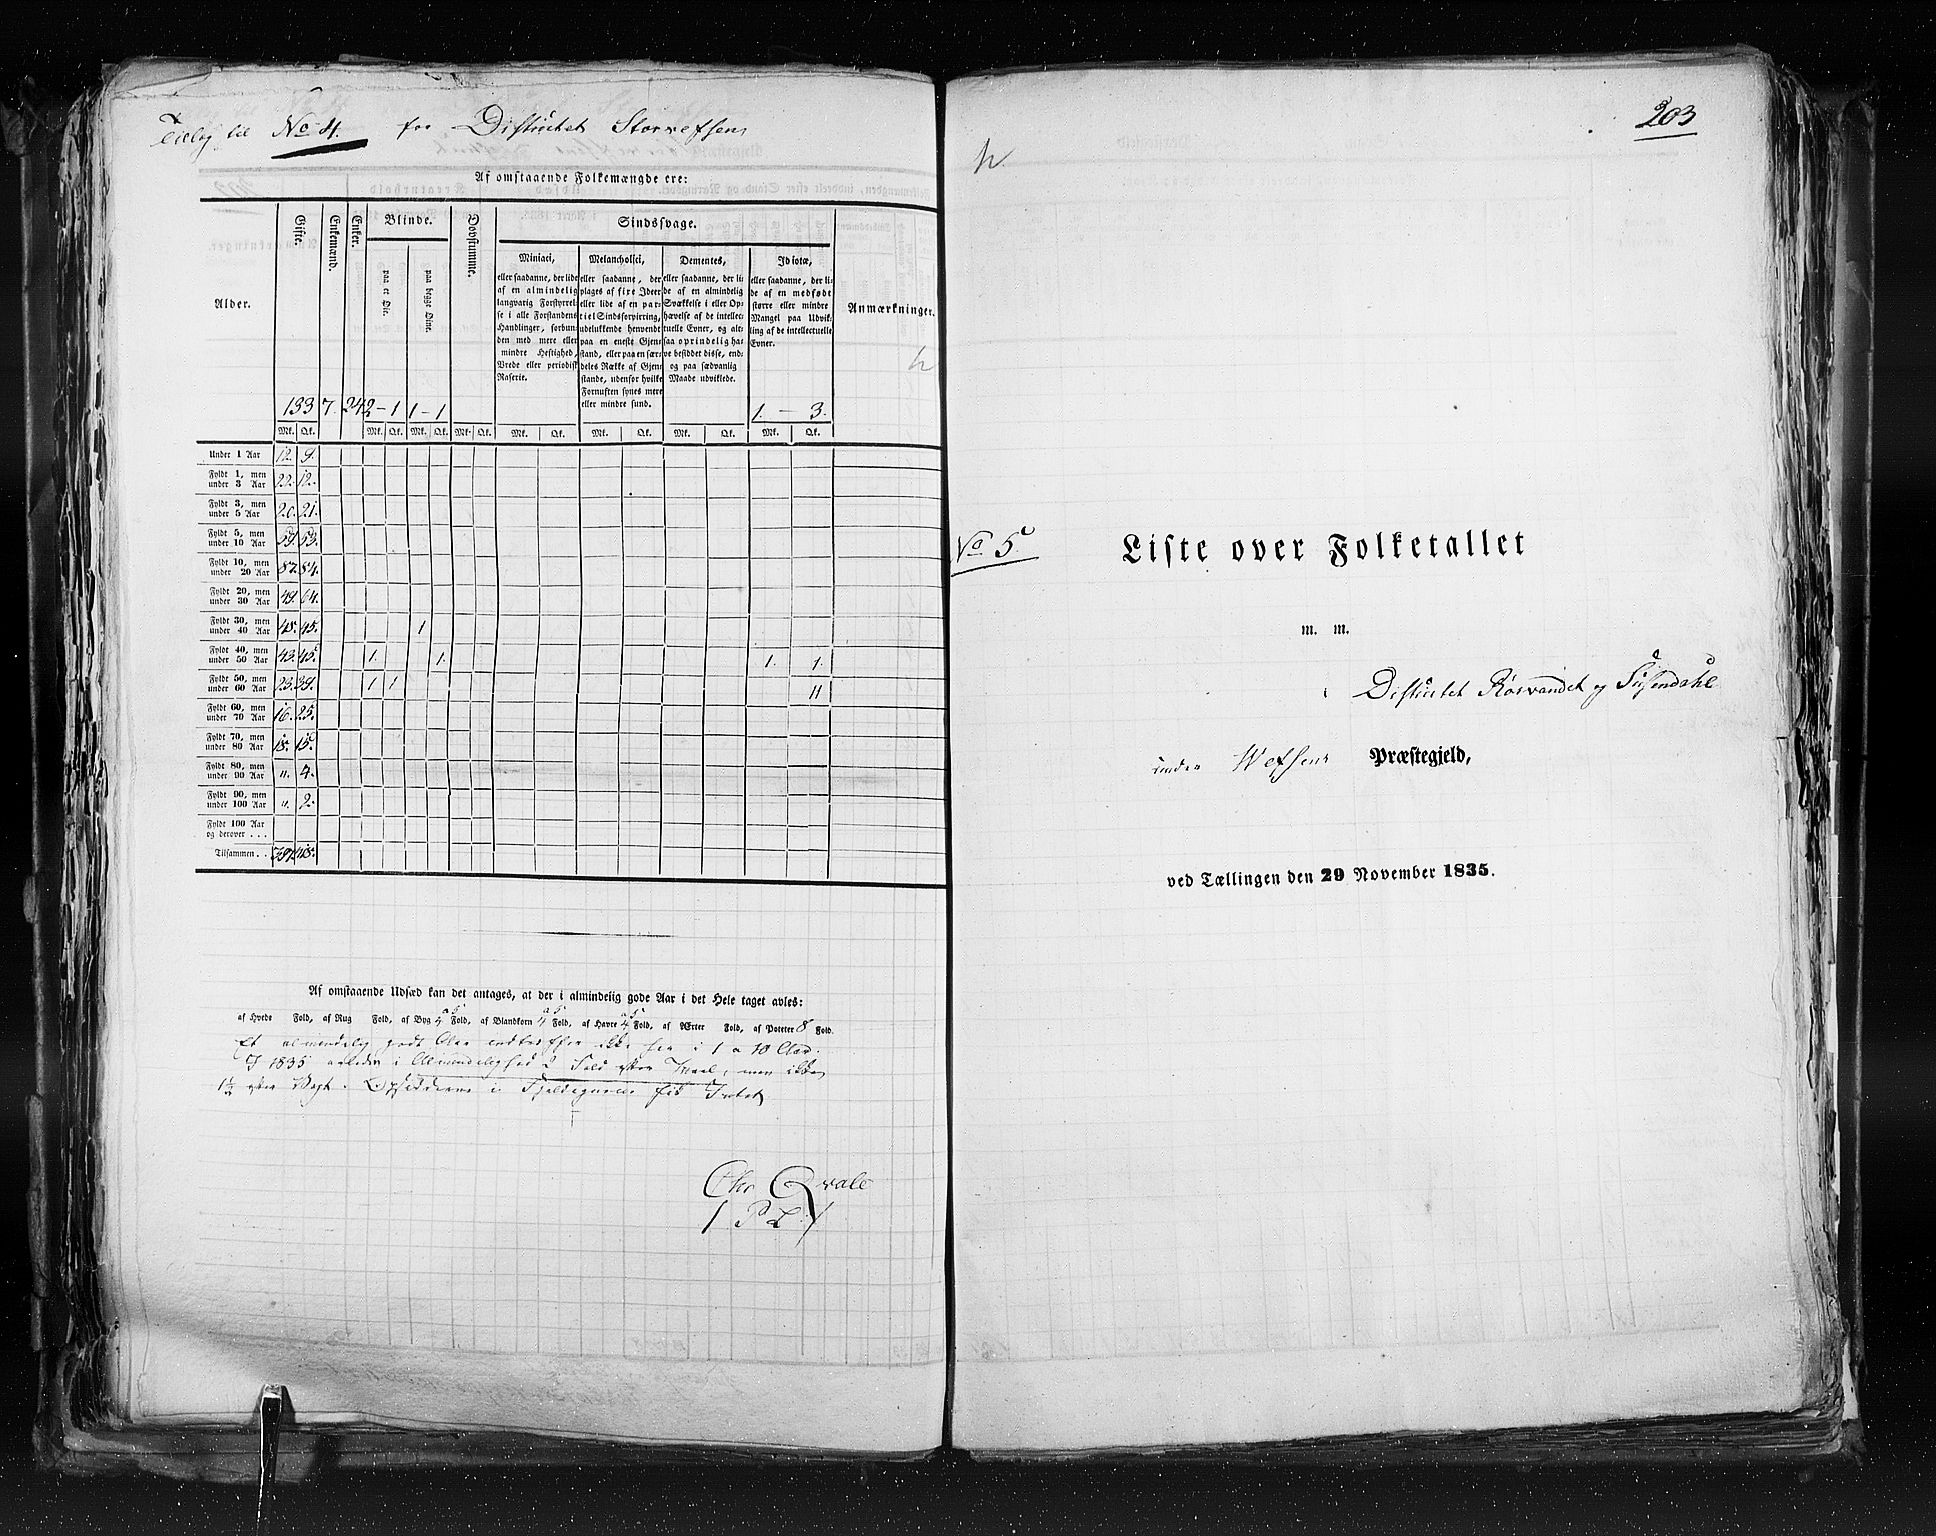 Tillæg til No 4. for Districtet Storvefsen
Af omstaaende Folkemængde ere:
Alder. Gifte. Enkemænd. Enker. Blinde. Dovstumme. Sindssvage. Anmærkninger.
paa et Øie. paa begge Øine.
Maniaci,
eller saadanne, der lide
af en almindelig
langvarig Forstyrrel-
se i alle Forstandens
Handlinger, forbun-
den med mere eller
mindre Heftighed,
Vrede eller periodisk
Raserie.
Melancholici,
eller saadanne, der
plages af fixe Ideer
eller lide af en par-
tiel Sindsforvirring,
udelukkende henvendt
paa en eneste Gjen-
stand, eller paa en sær-
deles Række af Gjen-
stande, udenfor hvilke
Fornuften synes mere
eller mindre sund.
Dementes,
eller saadanne, der li-
de af en almindelig
Svækkelse i eller Op-
hævelse af de intellec-
tuelle Evner, og alt-
saa oprindelig ha-
ve besiddet disse, end-
og paa sædvanlig
Maade udviklede.
Idiotæ,
eller saadanne, der li-
de af en medfødt
større eller mindre
Mangel paa Udvik-
ling af de intellectuelle
Evner.
133 7. 24 2 - 1 1 - 1 1. - 3.
Mk. Qk. Mk. Qk. Mk. Qk. Mk. Qk. Mk. Qk. Mk. Qk. Mk. Qk. Mk. Qk.
Under 1 Aar 12. 9.
Fyldt 1, men
under 3 Aar 22. 12.
Fyldt 3, men
under 5 Aar 20. 21.
Fyldt 5, men
under 10 Aar 59. 53.
Fyldt 10, men
under 20 Aar 87. 84.
Fyldt 20, men
under 30 Aar 49. 64.
Fyldt 30, men
under 40 Aar 48. 45. 1
Fyldt 40, men
under 50 Aar 43. 45. 1. 1. 1. 1.
Fyldt 50, men
under 60 Aar 23. 39. 1 1 11
Fyldt 60, men
under 70 Aar 16. 25.
Fyldt 70, men
under 80 Aar 18. 15.
Fyldt 80, men
under 90 Aar " 4.
Fyldt 90, men
under 100 Aar " 2.
Fyldt 100 Aar
og derover . . .
Tilsammen . .
Af omstaaende Udsæd kan det antages, at der i almindelig gode Aar i det Hele taget avles:
af Hvede Fold, af Rug Fold, af Byg 4 a 5 Fold, af Blandkorn 4 a 5 Fold, af Havre 4 a 5 Fold, af Ærter Fold, af Poteter 8 Fold.
Et almindelig godt Aar indtræffer ikke her i 1 a 10 Aar.
I 1835 avledes i Almindelighed 2 Fold efter Maal, men ikke
1½ efter Vægt. Opsidderne i Fjeldegnene fik Intet
Chr Qvale
/ P L /
203
No 5
Liste over Folketallet
m. m.
i Districtet Røsvandet og Susendahl
under Wefsens Præstegjeld,
ved Tællingen den 29 November 1835.